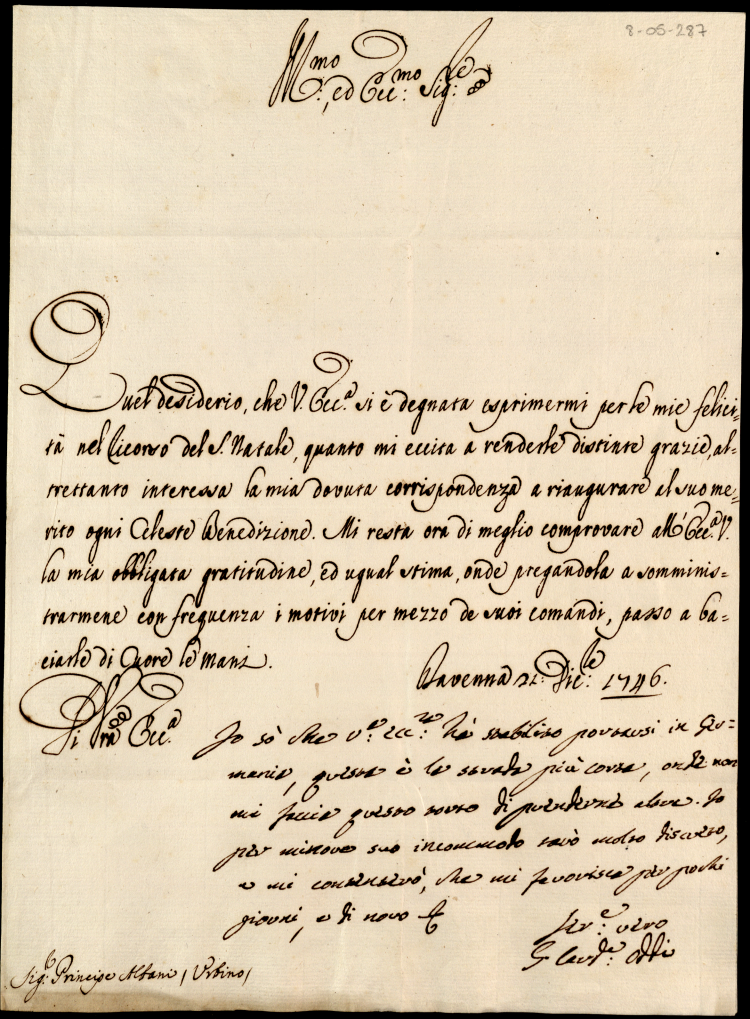 8-05-287
Ill.mo, ed Ecc.mo Sig.re
Quel desiderio, che V. Ecc.a si è degnata esprimermi per le mie felici=
tà nel Ricorso del S. Natale, quanto mi eccita a renderle distinte grazie, al=
trettanto interessa la mia dovuta corrispondenza a riaugurare al suo me=
rito ogni Celeste Benedizione. Mi resta ora di meglio comprovare all'Ecc.a V.
la mia obbligata gratitudine, ed ugual stima, onde pregandola a somminis=
trarmene con frequenza i motivi per mezzo de suoi comandi, passo a ba=
ciarle di Cuore le mani.
Ravenna 21: Dic.le 1746.
Di Vra Ecc.a
Io sò che V.a Ecc.za hà stabilito portarsi in Ger=
mania, questa è la strada più corta, onde non
mi faccia questo torto di prenderne altra. Io
per minore suo incommodo sarò molto discreto,
e mi contenterò, che mi favorisca per pochi
giorni, e di novo
Ser.e vero
G Card.e Oddi
Sig.r Principe Albani / Urbino /